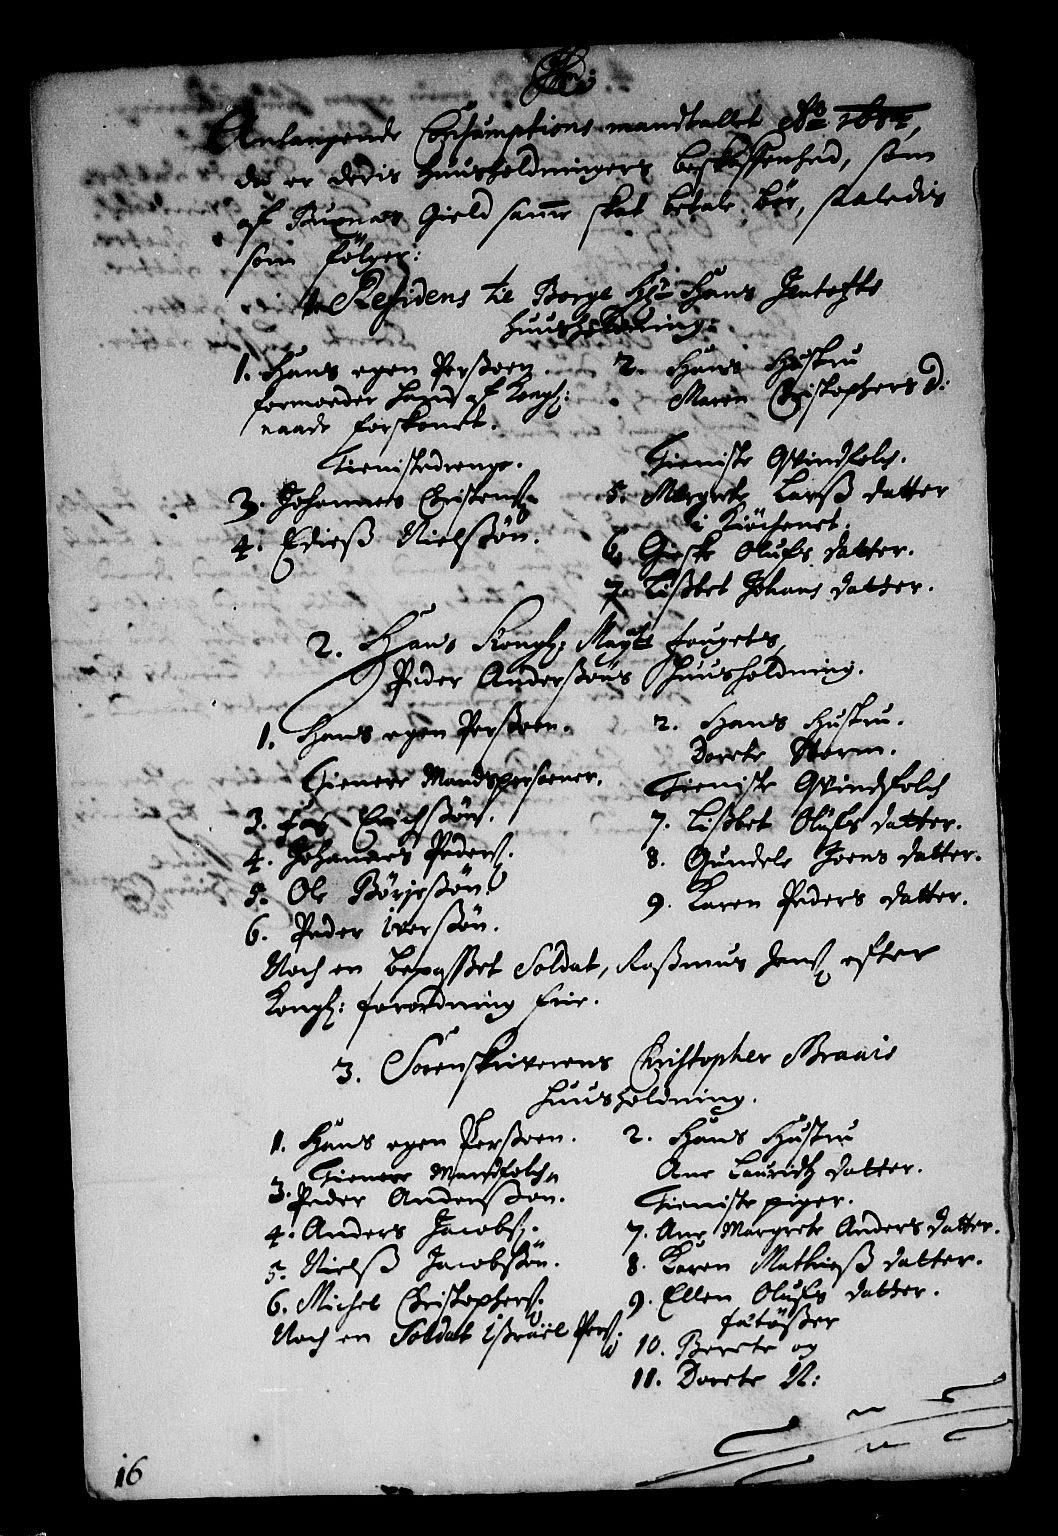 Anlangende Consumptions mandtallet Ao 1684,
da er dette huusholdningers beskaffenhed, som
af Buxnæs Gield samme skat betale bør, saaledis
som følger:
1. Residens til Borge Hr. Hans Jentofts
huusholdning.
1. Hans egen Persoen.
formoeder hand af Kongl:
naade forskonet.
Tienistedrenge.
3. Johannes Christens:
4. Edieß Nielßøn.
2. Hans Hustru
Maren Christophers D:
Tieniste Qvindfolch.
5. Margrete Larß datter
i Kiöchenet.
6. Gieske Olufs datter.
7. Lißbet Johans datter.
2. Hans Kongl: Mayts fougets,
Peder Anderßøns Huusholdning.
1. Hans egen Perßoen.
Tienere Mandspersoener.
3. Erichßøn.
4. Johannes Peders:
5. Ole Börjeßøn.
6. Peder Iverßøn.
2. Hans Hustru.
Dorete Storm.
Tieniste Qvindfolch
7. Lißbet Olufs datter.
8. Gundele Joens datter.
9. Karen Peders datter.
Noch en bepasset Soldat, Raßmus Jens: efter
Kongl: forordning frie.
3. Sorenskriverens Christopher Braais
huusholdning.
1. Hans egen Perßoen.
Tienere Mandfolch
3. Peder Anderßøn.
4. Anders Jacobs:
5. Nielß Jacobßøn.
6. Michel Christophers:
Noch en Soldat Ißrael Pers:
2. Hans Hustru
Ane Lauridtz datter.
Tieniste piger.
7. Ane Margrete Anders datter.
8. Karen Mathieß datter.
9. Ellen Olufs datter.
fätößer
10. Berete og
11. Dorete N:
16